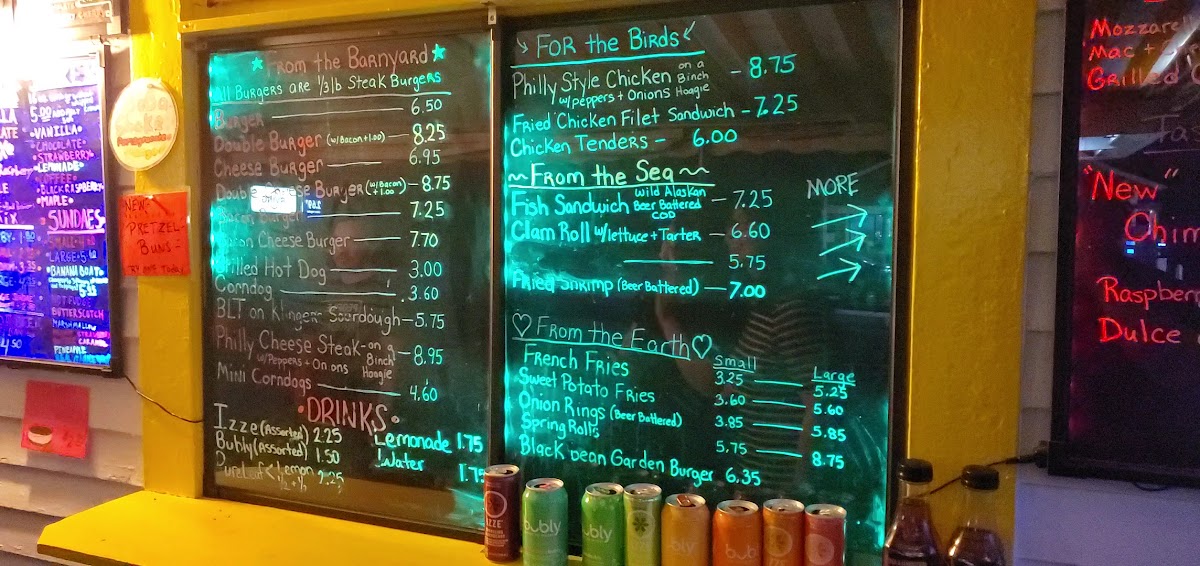 VANILLA
CHOCOLATE
STRAWBERRY
LEMONADE
COFFEE
BLACK RASPBERRY
MAPLE
SUNDAES
BANANA BOAT
HOT FUDGE
BUTTERSCOTCH
MARSHMALLOW
STRAWBERRY
CARAMEL
PINEAPPLE
NEW
PRETZEL
BUNS
TRY ONE TODAY
From the Barnyard
All Burgers are 1/3 lb Steak Burgers
Burger 6.50
Double Burger (w/Bacon +1.00) 8.25
Cheese Burger 6.95
Double Cheese Burger (w/Bacon +1.00) - 8.75
Bacon Burger 7.25
Bacon Cheese Burger 7.70
Grilled Hot Dog 3.00
Corndog 3.60
BLT on Klingers Sourdough - 5.75
Philly Cheese Steak - on a Binch Hoagie - 8.95
w/Peppers + Onions
Mini Corndogs 4.60
DRINKS
Izze (Assorted) 2.25
Bubly (Assorted) 1.50
PureLeaf < Lemon ½ + ½ 2.25
Lemonade 1.75
Water 1.75
For the Birds
Philly Style Chicken on a Binch Hoagie - 8.75
w/peppers + Onions
Fried Chicken Filet Sandwich - 7.25
Chicken Tenders - 6.00
From the Sea
Fish Sandwich Wild Alaskan Beer Battered COD - 7.25
Clam Roll w/lettuce + Tarter - 6.60
5.75
Fried Shrimp (Beer Battered) - 7.00
MORE
From the Earth
Small Large
French Fries 3.25 5.25
Sweet Potato Fries 3.60 5.60
Onion Rings (Beer Battered) 3.85 5.85
Spring Rolls 5.75 8.75
Black bean Garden Burger 6.35
IZZE
bubly
bubly
bubly
bub
Mac +
Grilled
"New"
Dulce